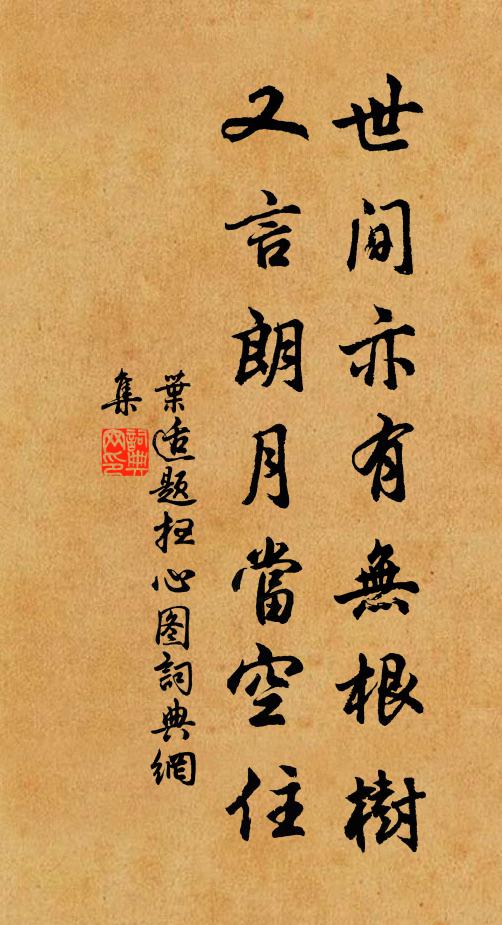 世間亦有無根樹
又言朗月當空住
葉适題扗心图詞典網
集
詞典
网印